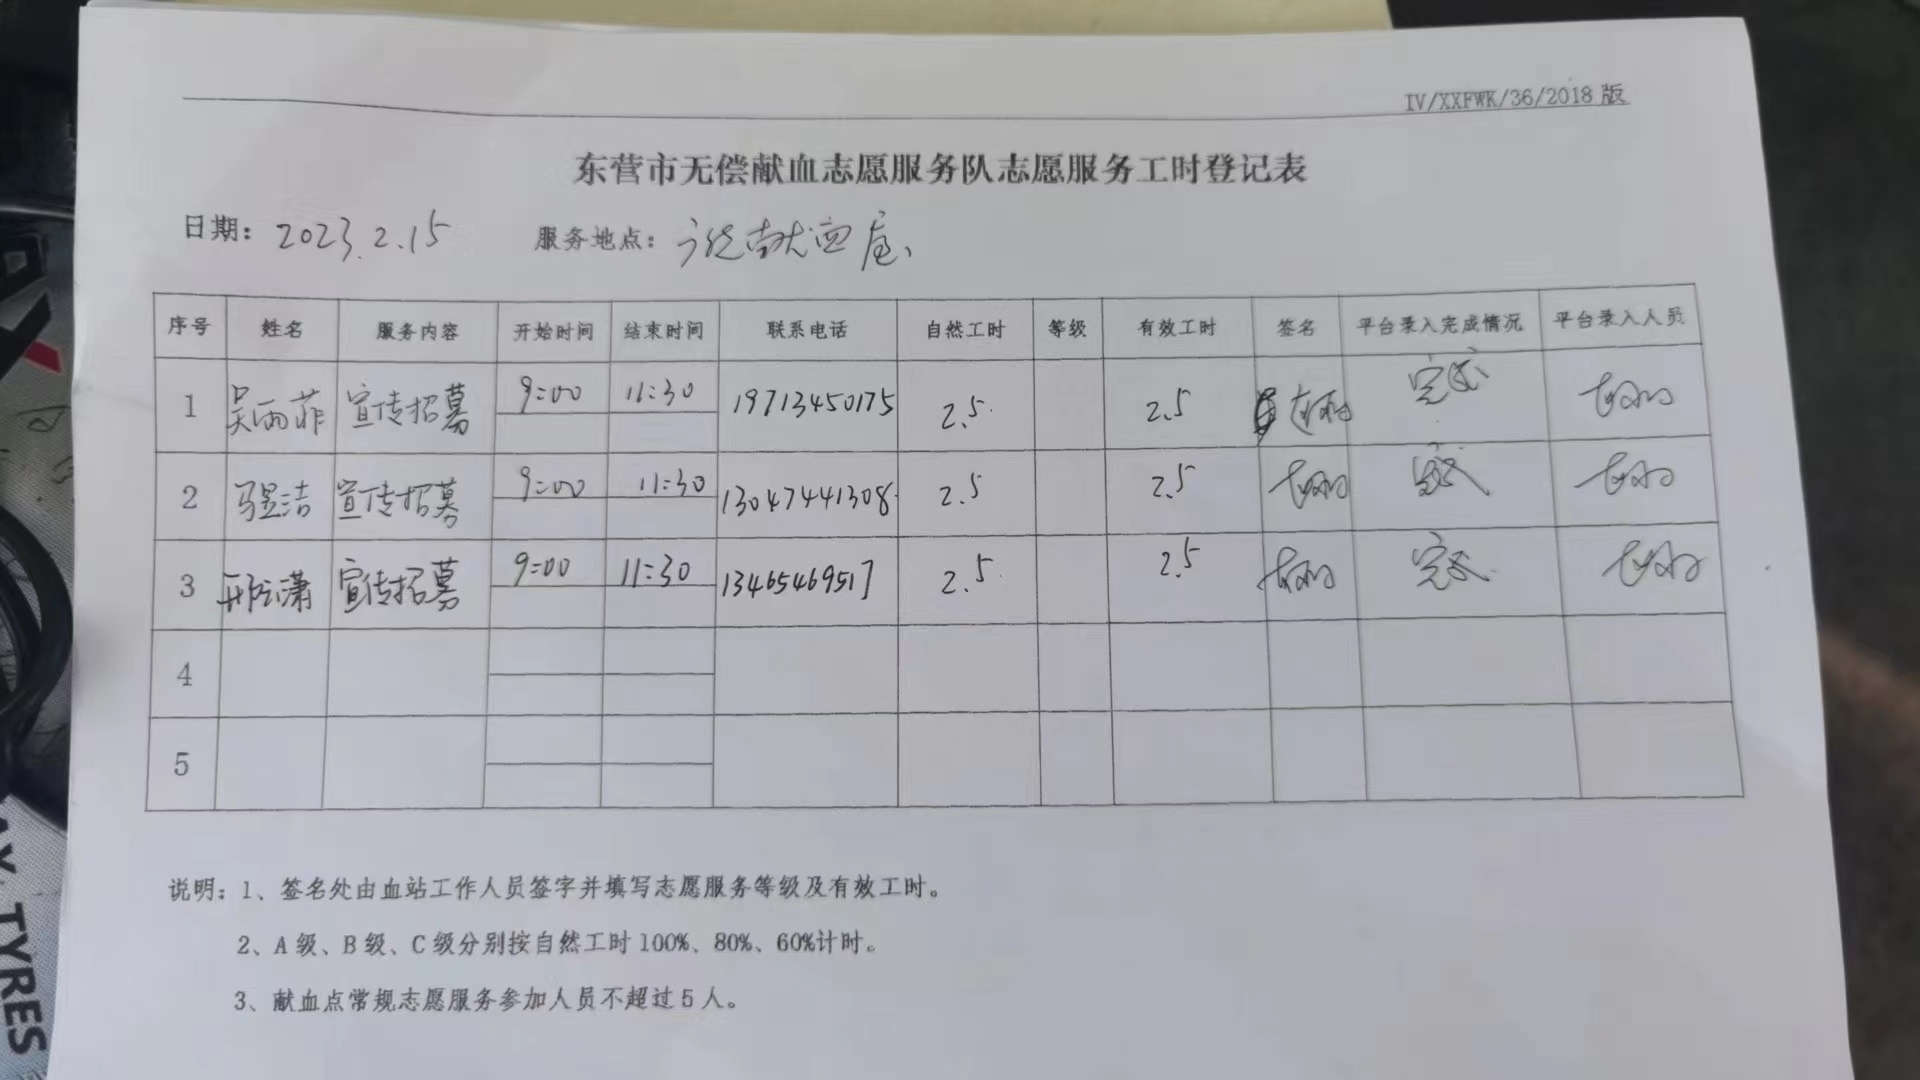 IV/XXFWK/36/2018 版
东营市无偿献血志愿服务队志愿服务工时登记表
日期: 2023.2.15 服务地点: 献血屋
序号 姓名 服务内容 开始时间 结束时间 联系电话 自然工时 等级 有效工时 签名 平台录入完成情况 平台录入人员
1 吴雨菲 宣传招募 9:00 11:30 19713450175 2.5 2.5 完成
2 洁 宣传招募 9:00 11:30 13047441308 2.5 2.5 完成
3 邢 潇 宣传招募 9:00 11:30 13465469517 2.5 2.5 完成
4
5
说明: 1、签名处由血站工作人员签字并填写志愿服务等级及有效工时。
2、A级、B级、C级分别按自然工时100%、80%、60%计时。
3、献血点常规志愿服务参加人员不超过5人。
TYRES